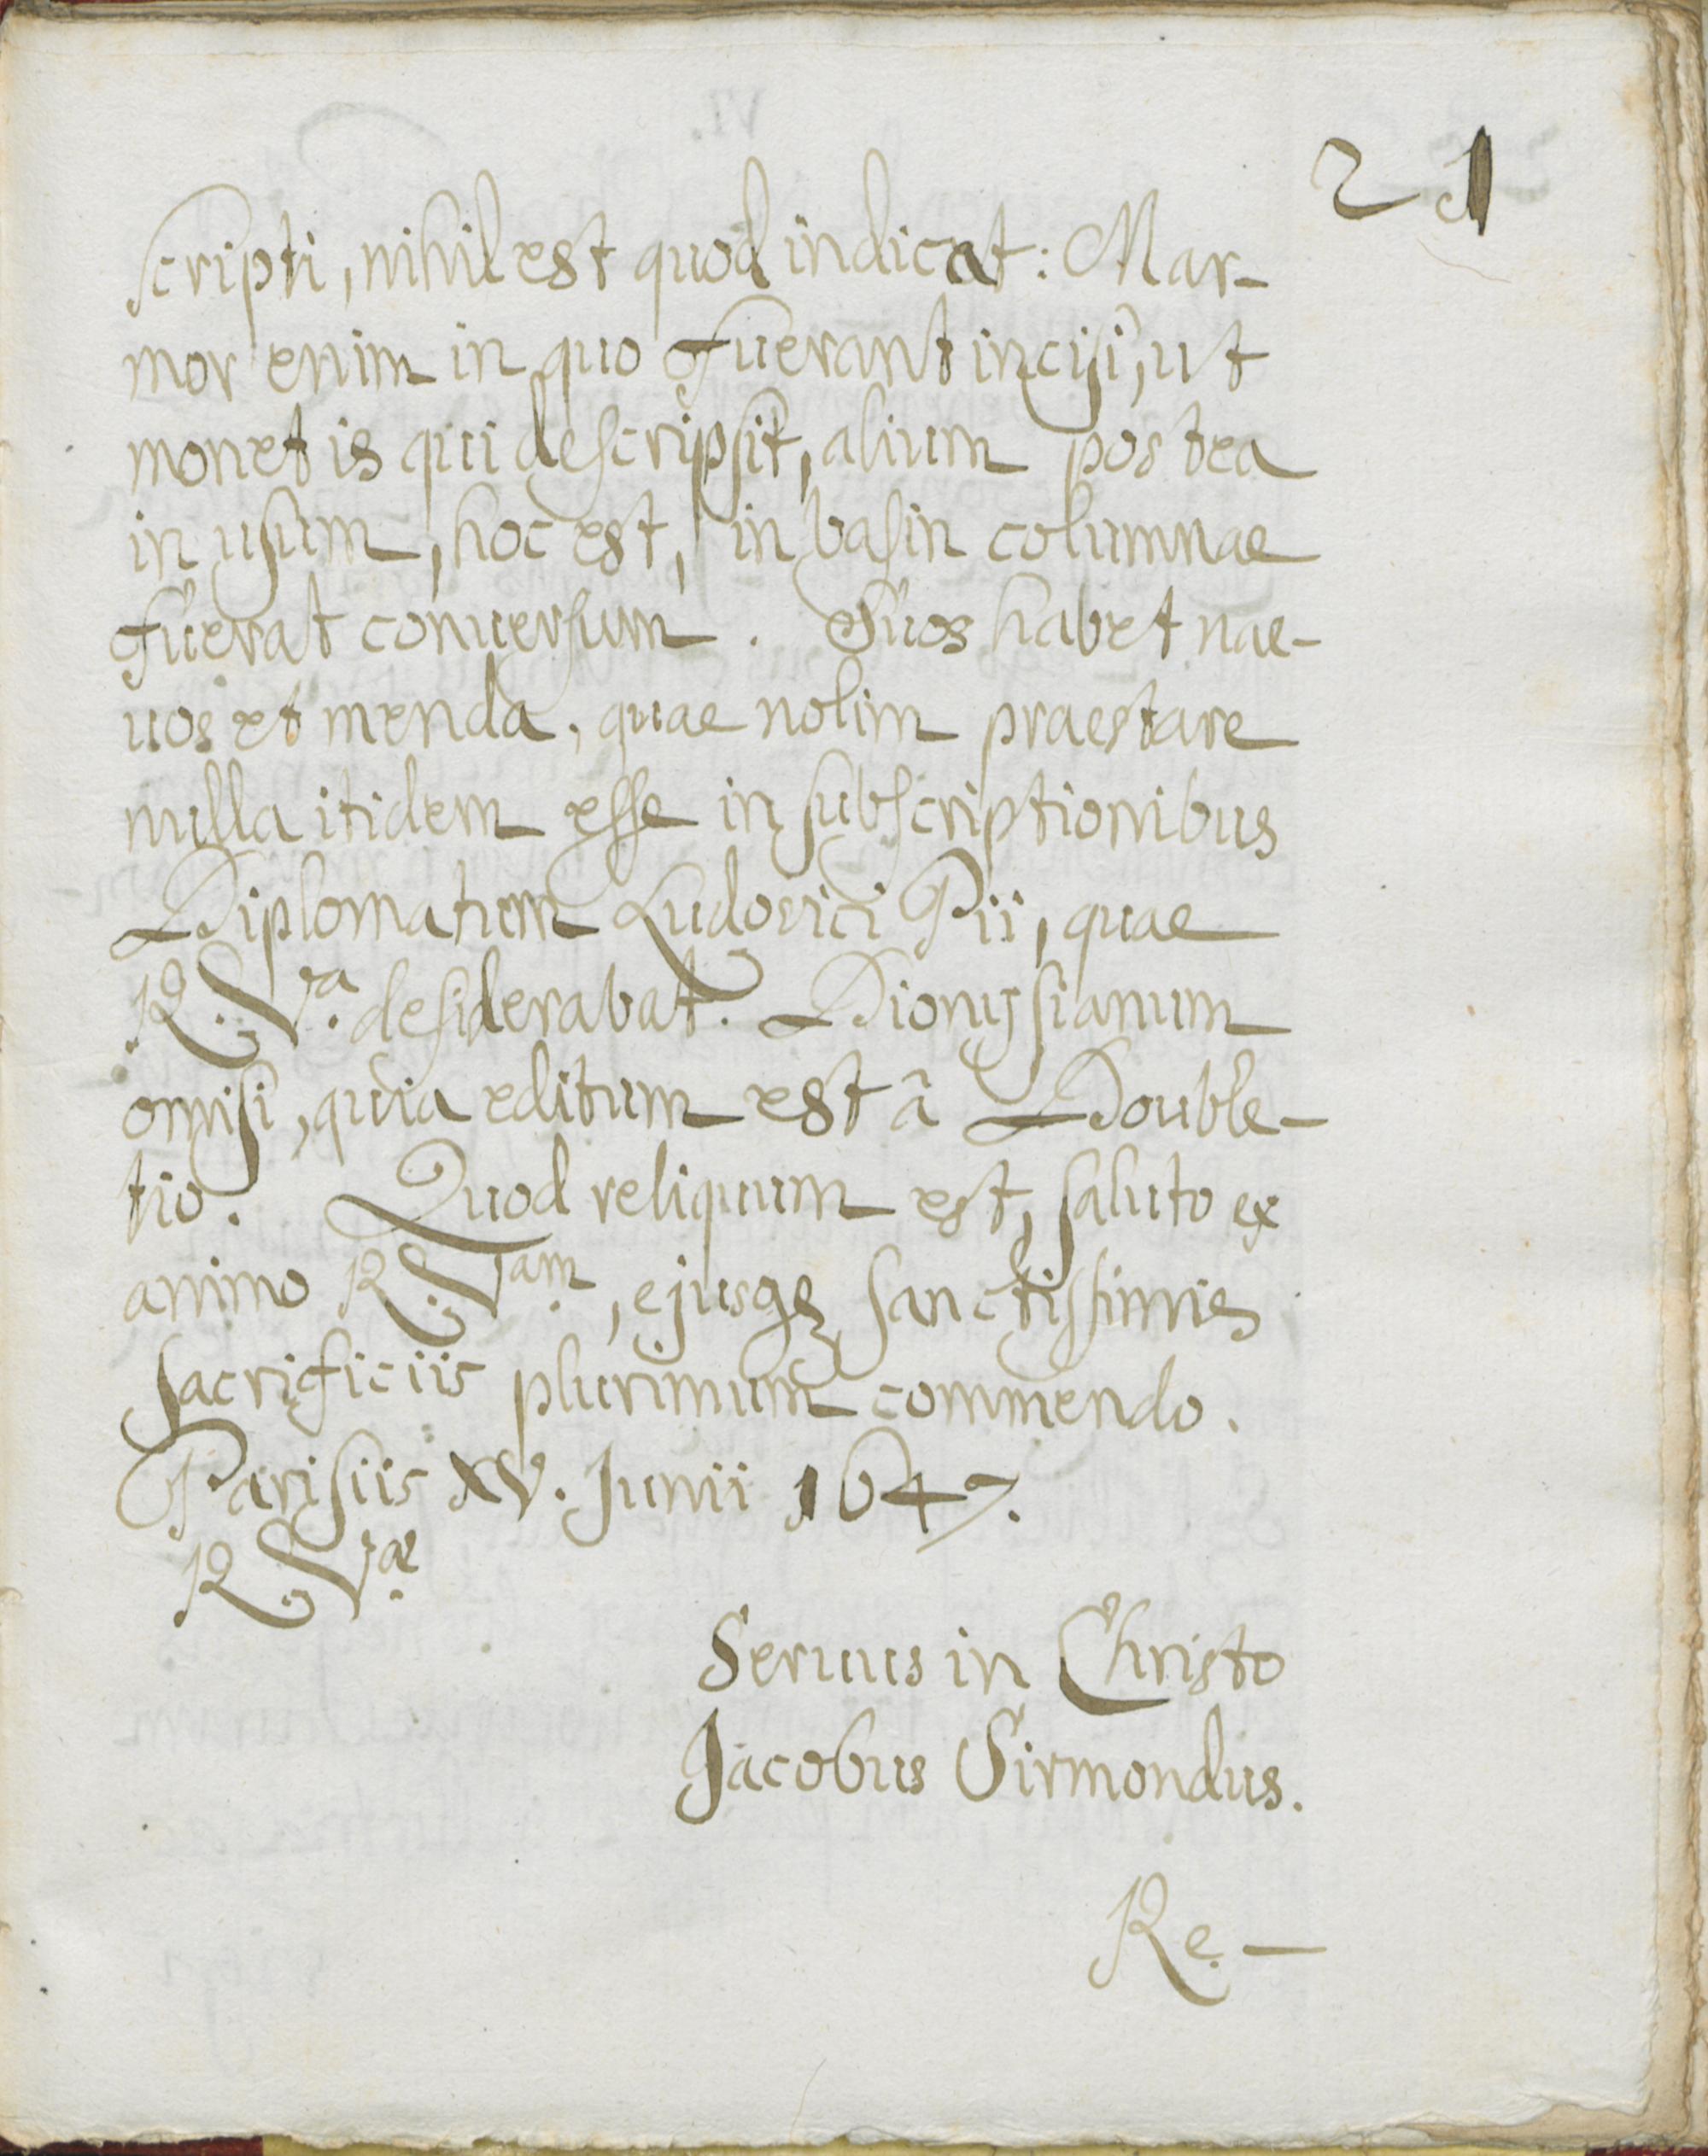 21
scripti, nihil est quod indicat: Mar-
mor enim in quo fuerant incisi, ut
monet is qui descripsit, alium postea
in usum, hoc est, in basin columnae
fuerat conuersum. Suos habet nae-
uos et menda, quae nolim praestare
nulla itidem esse in subscriptionibus
Diplomatum Ludovici Pii, quae
R. Vᵃ. desiderabat. Dionysianum
omisi, quia editum est â Double-
tio. Quod reliquum est, saluto ex
animo R. Vᵃᵐ., ejusqȝ sanctissimis
sacrificiis plurimum commendo.
Parisiis XV. Junii 1647.
R. Vᵃᵉ.
Seruus in Christo
Jacobus Sirmondus.
Re-